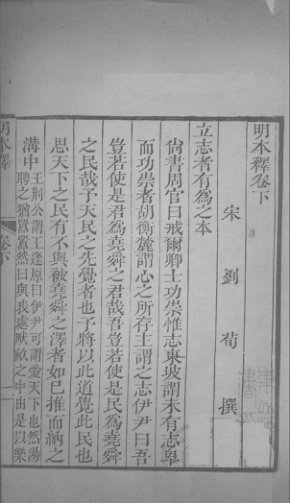 明本釋卷下
宋 劉荀 撰
立志者有為之本
尚書周官曰戒爾卿士功崇惟志東坡謂未有志卑
而功崇者胡衡麓謂心之所存主謂之志伊尹曰吾
豈若使是君為堯舜之君哉吾豈若使是民為堯舜
之民哉予天民之先覺者也予將以此道覺此民也
思天下之民有不與被堯舜之澤者如己推而納之
溝中王荆公謂王逢原曰伊尹可謂愛天下也然湯
聘之猶囂囂然曰與我處畎畝之中由是以樂
明本釋
卷下